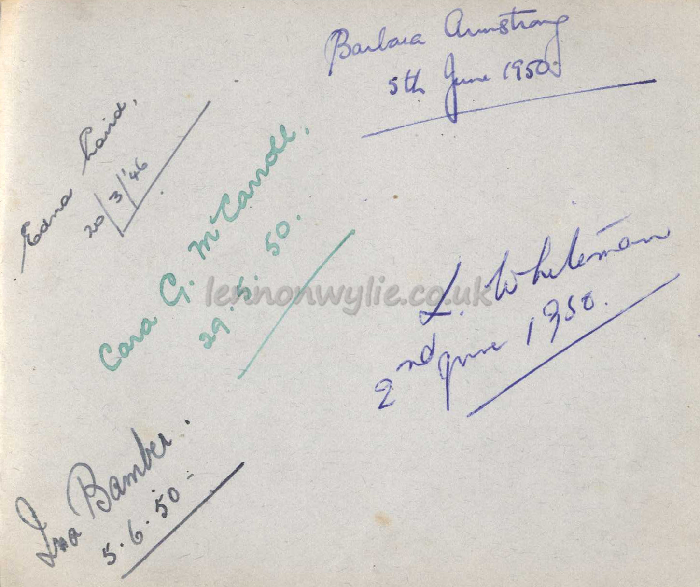 Barbara Armstrong
5th June 1950.
Edna Laird,
20/3/'46
Cara G. McCarroll,
29. 5. 50.
lennonwylie.co.uk
L. Whiteman
2nd June 1950.
Ina Bamber.
5.6.50.